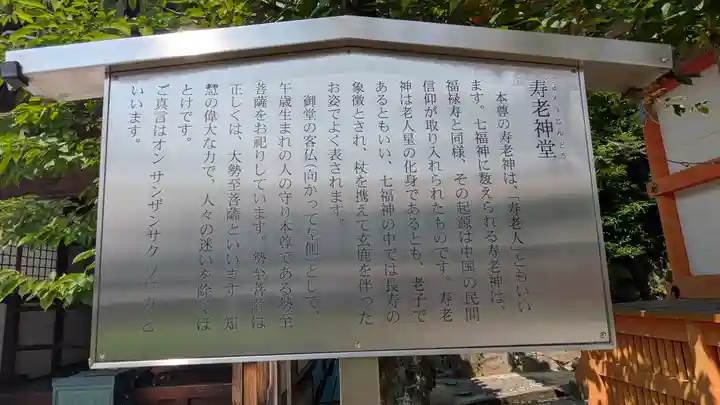 じゅろうじんどう
寿老神堂
本尊の寿老神は、「寿老人」ともいい
ます。七福神に数えられる寿老神は、
福禄寿と同様、その起源は中国の民間
信仰が取り入れられたものです。寿老
神は老人星の化身であるとも、老子で
あるともいい、七福神の中では長寿の
象徴とされ、杖を携えて玄鹿を伴った
お姿でよく表されます。
御堂の客仏(向かって左側)として、
午歳生まれの人の守り本尊である勢至
菩薩をお祀りしています。勢至菩薩は
正しくは、大勢至菩薩といいます。知
慧の偉大な力で、人々の迷いを除くほ
とけです。
ご真言はオン サンザンサク ソワカと
いいます。